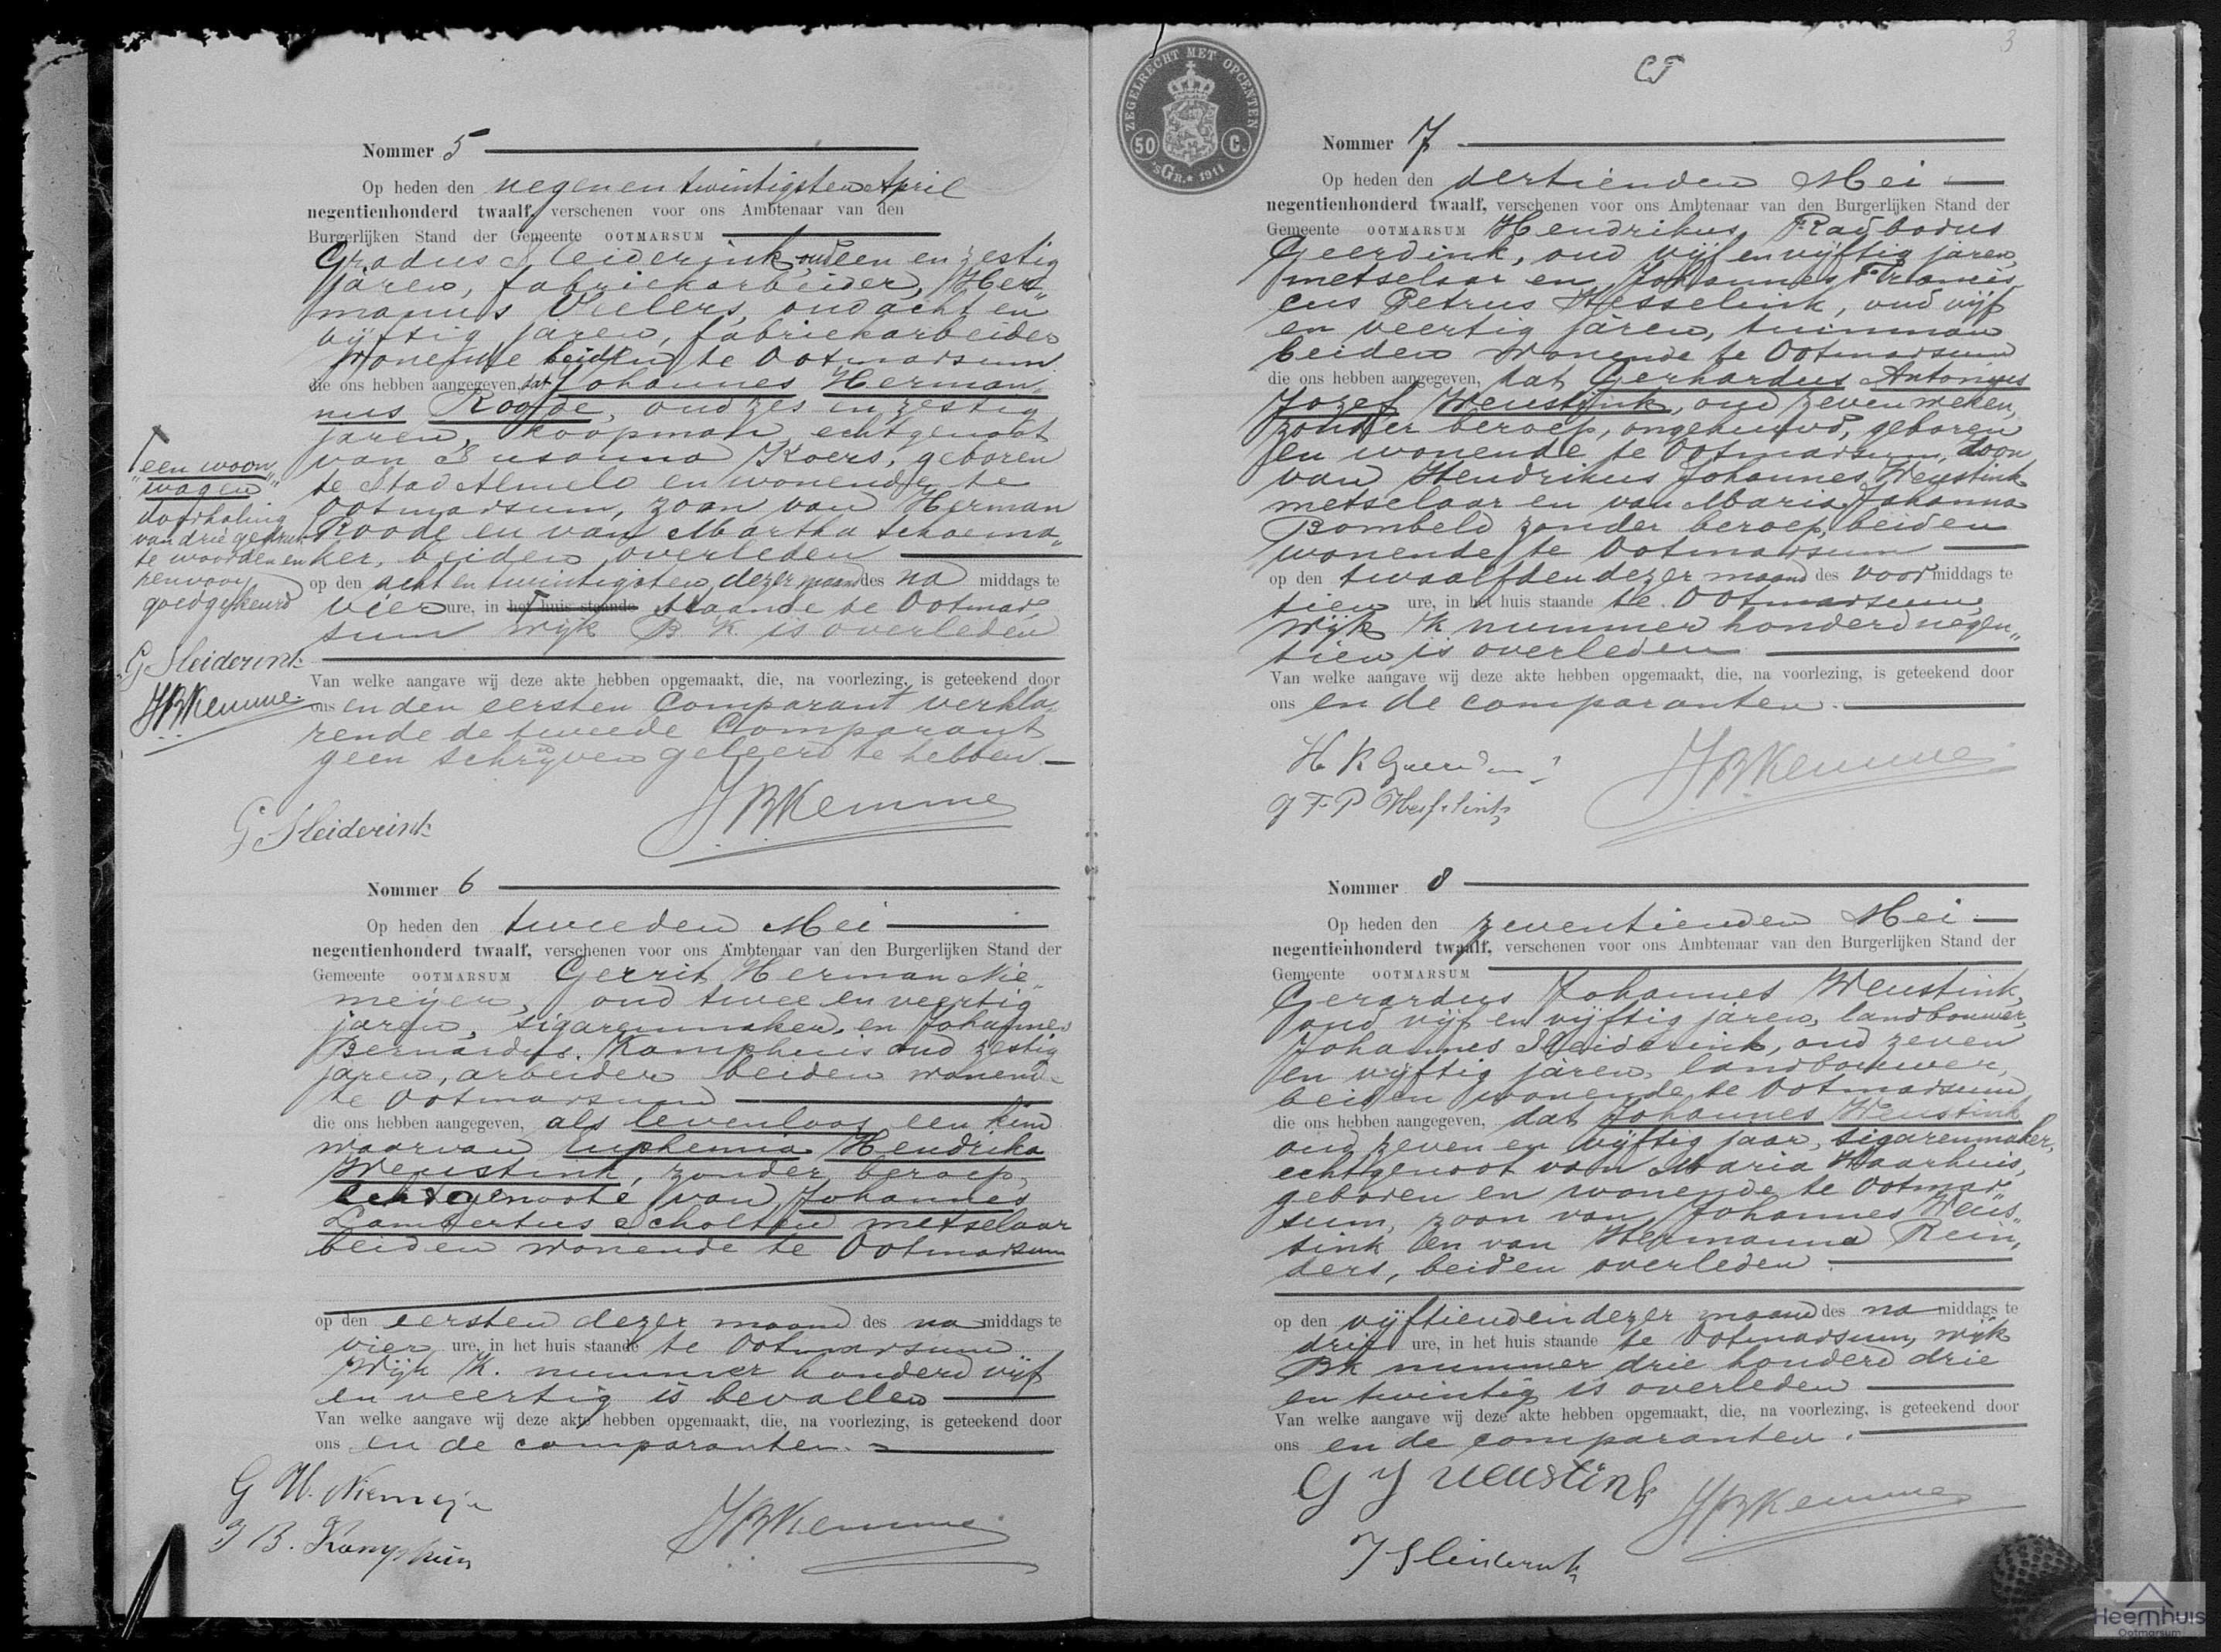 Nommer 5
Op heden den negenentwintigsten April
negentienhonderd twaalf, verschenen voor ons Ambtenaar van den
Burgerlijken Stand der Gemeente OOTMARSUM
Gradus Sleiderink, oud een en zestig
jaren, fabriekarbeider, Her
manus Vielers, oud acht en
vijftig jaren, fabriekarbeider
wonende beiden te Ootmarsum
die ons hebben aangegeven, dat Johannes Herman
nus Roode, oud zes en zestig
jaren, koopman, echtgenoot
van Susanna Koers, geboren
te Stad Almelo en wonende te
Ootmarsum, zoon van Herman
Roode en van Martha Schoema
ker, beiden overleden
op den acht en twintigsten dezer maand des na middags te
vier ure, in het huis staande staande te Ootmar
sum wijk B K is overleden
Van welke aangave wij deze akte hebben opgemaakt, die, na voorlezing, is geteekend door
ons en den eersten Comparant verkla
rende de tweede Comparant
geen schrijven geleerd te hebben
G Sleiderink
JBKemme
een woon
wagen
doorhaling
van drie gedruk
te woorden en
renvooy
goedgekeurd
G Sleiderink
JBKemme
Nommer 6
Op heden den tweeden Mei
negentienhonderd twaalf, verschenen voor ons Ambtenaar van den Burgerlijken Stand der
Gemeente OOTMARSUM Gerrit Herman Nie
meijer, oud twee en veertig
jaren, sigarenmaker en Johannes
Bernardus Kamphuis oud zestig
jaren, arbeider beiden wonende
te Ootmarsum
die ons hebben aangegeven, als levenloos een kind
waarvan Euphemia Hendrika
Weustink, zonder beroep,
echtgenoote van Johannes
Lambertus Scholten metselaar
beiden wonende te Ootmarsum
op den eersten dezer maand des na middags te
vier ure, in het huis staande te Ootmarsum
Wijk K. nummer honderd vijf
en veertig is bevallen
Van welke aangave wij deze akte hebben opgemaakt, die, na voorlezing, is geteekend door
ons en de comparanten.
G H. Niemeijer
J B. Kamphuis
JBKemme
3
ZEGELRECHT MET OPCENTEN
50 C.
'sGR. * 1911
Nommer 7
Op heden den dertienden Mei
negentienhonderd twaalf, verschenen voor ons Ambtenaar van den Burgerlijken Stand der
Gemeente OOTMARSUM Hendrikus Radbodus
Geerdink, oud vijf en vijftig jaren,
metselaar en Johannes Francis
cus Petrus Hesselink, oud vijf
en veertig jaren, tuinman
beiden wonende te Ootmarsum
die ons hebben aangegeven, dat Gerhardus Antonius
Jozef Weustink, oud zeven weken,
zonder beroep, ongehuwd, geboren
en wonende te Ootmarsum, zoon
van Hendrikus Johannes Weustink
metselaar en van Maria Johanna
Bombeld zonder beroep, beiden
wonende te Ootmarsum
op den twaalfden dezer maand des voor middags te
tien ure, in het huis staande te Ootmarsum,
wijk K nummer honderd negen
tien is overleden
Van welke aangave wij deze akte hebben opgemaakt, die, na voorlezing, is geteekend door
ons en de comparanten.
H R Geerdink
J F P Hesselink
JBKemme
Nommer 8
Op heden den zeventienden Mei
negentienhonderd twaalf, verschenen voor ons Ambtenaar van den Burgerlijken Stand der
Gemeente OOTMARSUM
Gerardus Johannes Weustink,
oud vijf en vijftig jaren, landbouwer,
Johannes Sleiderink, oud zeven
en vijftig jaren, landbouwer,
beiden wonende te Ootmarsum
die ons hebben aangegeven, dat Johannes Weustink
oud zeven en vijftig jaar, sigarenmaker,
echtgenoot van Maria Waarhuis,
geboren en wonende te Ootmar
sum, zoon van Johannes Weus
tink en van Hermanna Rein
ders, beiden overleden
op den vijftienden dezer maand des na middags te
drie ure, in het huis staande te Ootmarsum, wijk
BK nummer drie honderd drie
en twintig is overleden
Van welke aangave wij deze akte hebben opgemaakt, die, na voorlezing, is geteekend door
ons en de comparanten.
G J Weustink
J Sleiderink
JBKemme
Heemhuis
Ootmarsum